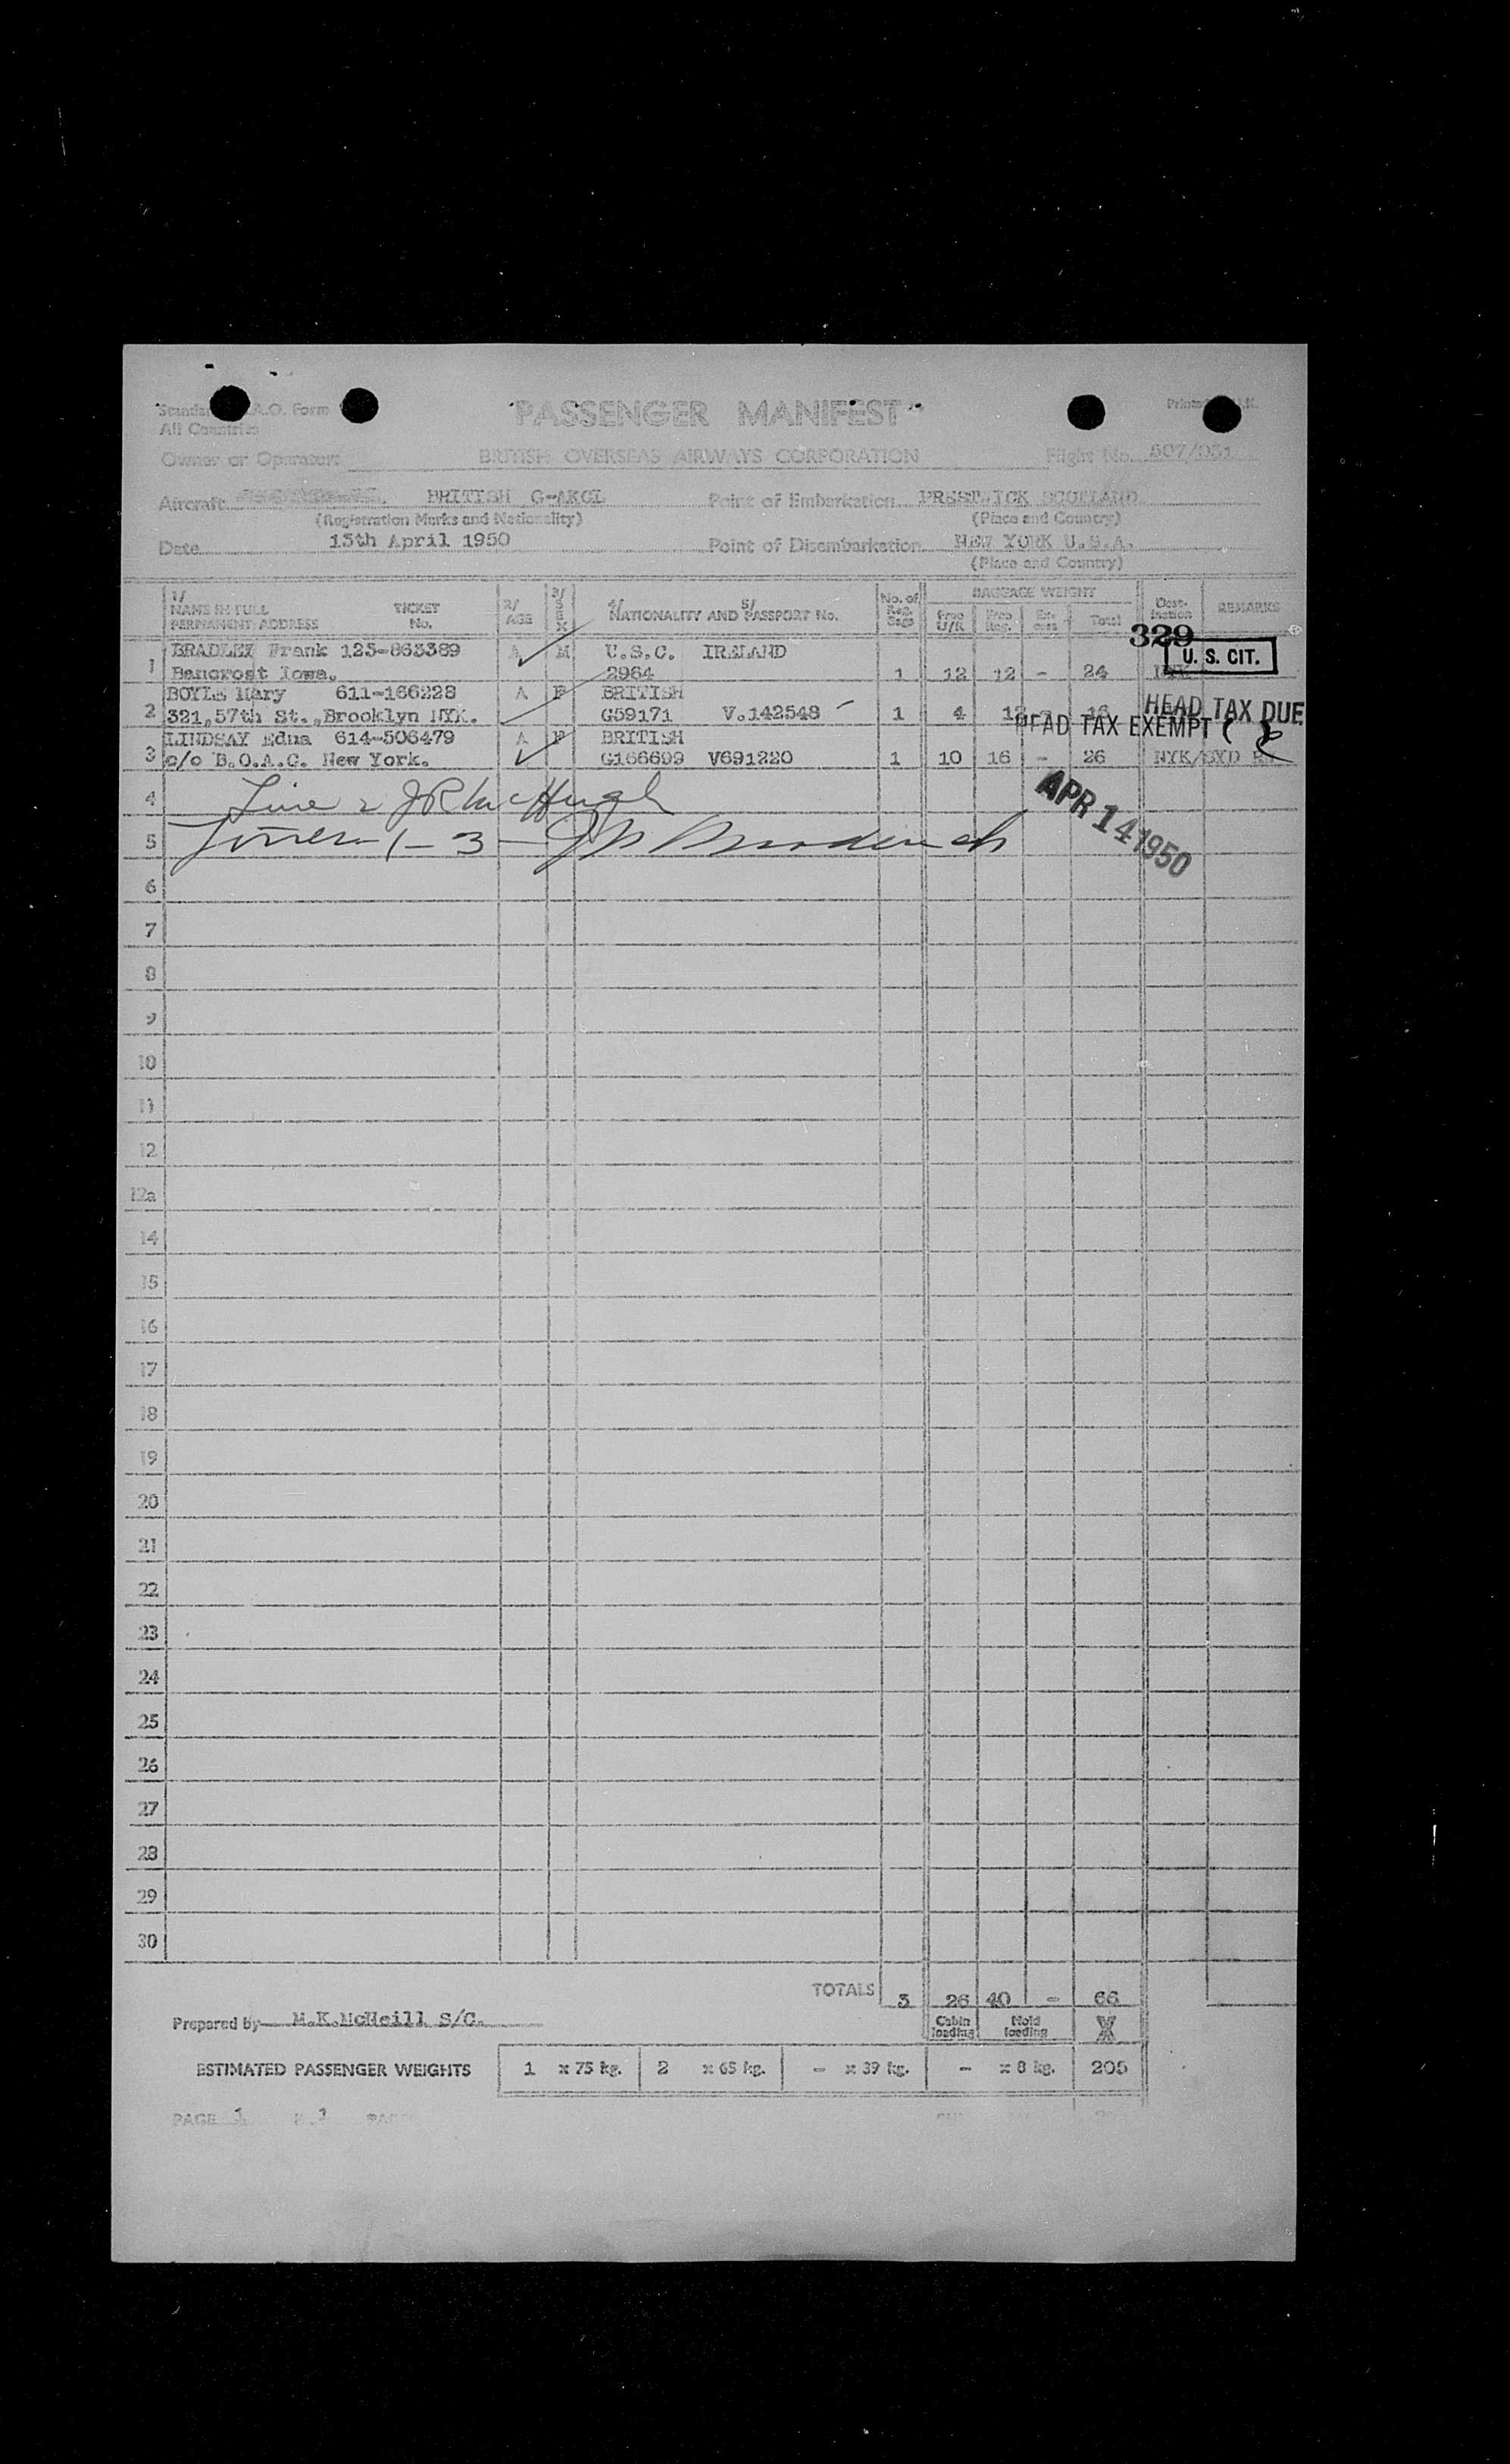 PASSENGER MANIFEST
A.O. Form
All Countries
Owner or Operator: BRITISH OVERSEAS AIRWAYS CORPORATION Flight No. 507/051
Aircraft BRITISH G-AKGL Point of Embarkation PRESTWICK SCOTLAND
(Registration Marks and Nationality) (Place and Country)
Date 13th April 1950 Point of Disembarkation NEW YORK U.S.A.
(Place and Country)
1/ 2/ 3/ 4/ 5/ No. of BAGGAGE WEIGHT
NAME IN FULL TICKET AGE SEX NATIONALITY AND PASSPORT No. Reg. Bags Free U/R Free Reg. Ex-cess Total Dest-ination REMARKS
PERMANENT ADDRESS No.
329
BRADLEY Frank 123-863389 A M U.S.C. IRELAND U. S. CIT.
1 Bancrost Iowa. 2964 1 12 12 - 24
BOYLE Mary 611-166228 A F BRITISH HEAD TAX DUE
2 321,57th St.,Brooklyn NYK. G59171 V.142548 1 4 12 - 16
HEAD TAX EXEMPT ( )
LINDSAY Edna 614-506479 A F BRITISH
3 c/o B.O.A.C. New York. G166699 V691220 1 10 16 - 26 NYK/SYD
4 Line 2 JR McHugh
APR 14 1950
5 Lines 1-3 -
6
7
8
9
10
11
12
12a
14
15
16
17
18
19
20
21
22
23
24
25
26
27
28
29
30
TOTALS 3 26 40 - 66
Prepared by M.K.McNeill S/C. Cabin loading Hold loading
ESTIMATED PASSENGER WEIGHTS 1 x 75 kg. 2 x 65 kg. - x 39 kg. - x 8 kg. 205
PAGE 1